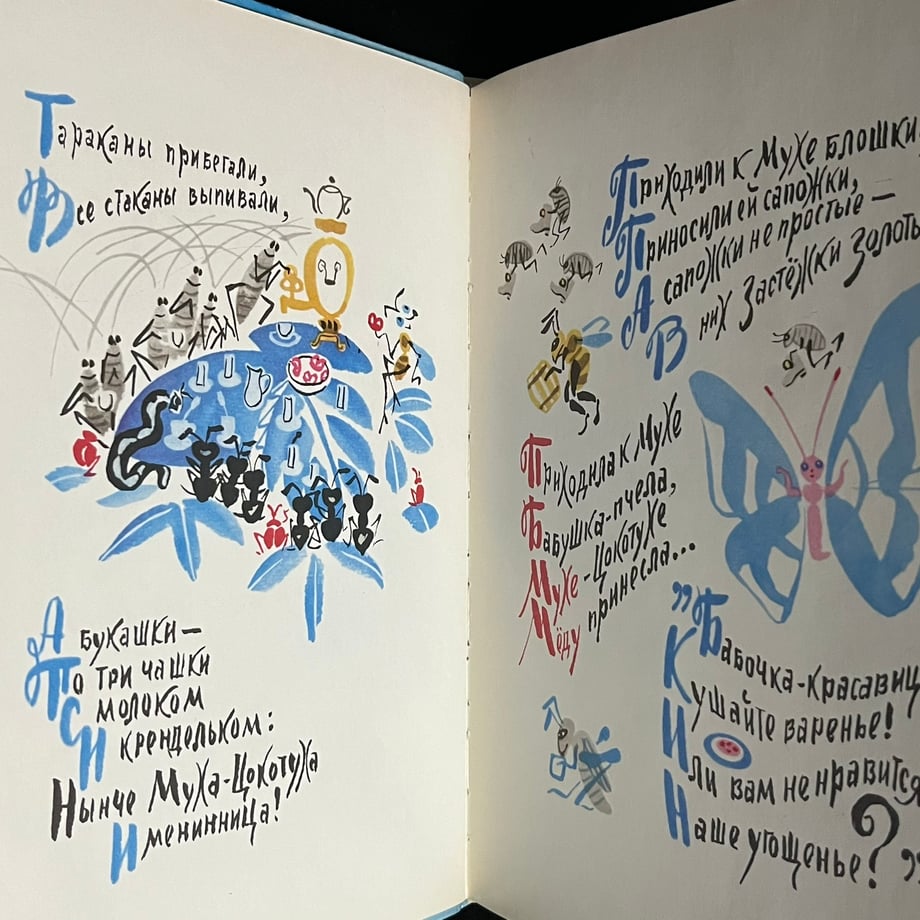 Тараканы прибегали,
Все стаканы выпивали,
А букашки —
По три чашки
С молоком
И крендельком:
Нынче Муха-Цокотуха
Именинница!
Приходили к Мухе блошки
Приносили ей сапожки,
А сапожки не простые —
В них застёжки золоты
Приходила к Мухе
Бабушка-пчела,
Мухе-Цокотухе
Мёду принесла...
„Бабочка-красавиц
Кушайте варенье!
Или вам не нравится
Наше угощенье?”